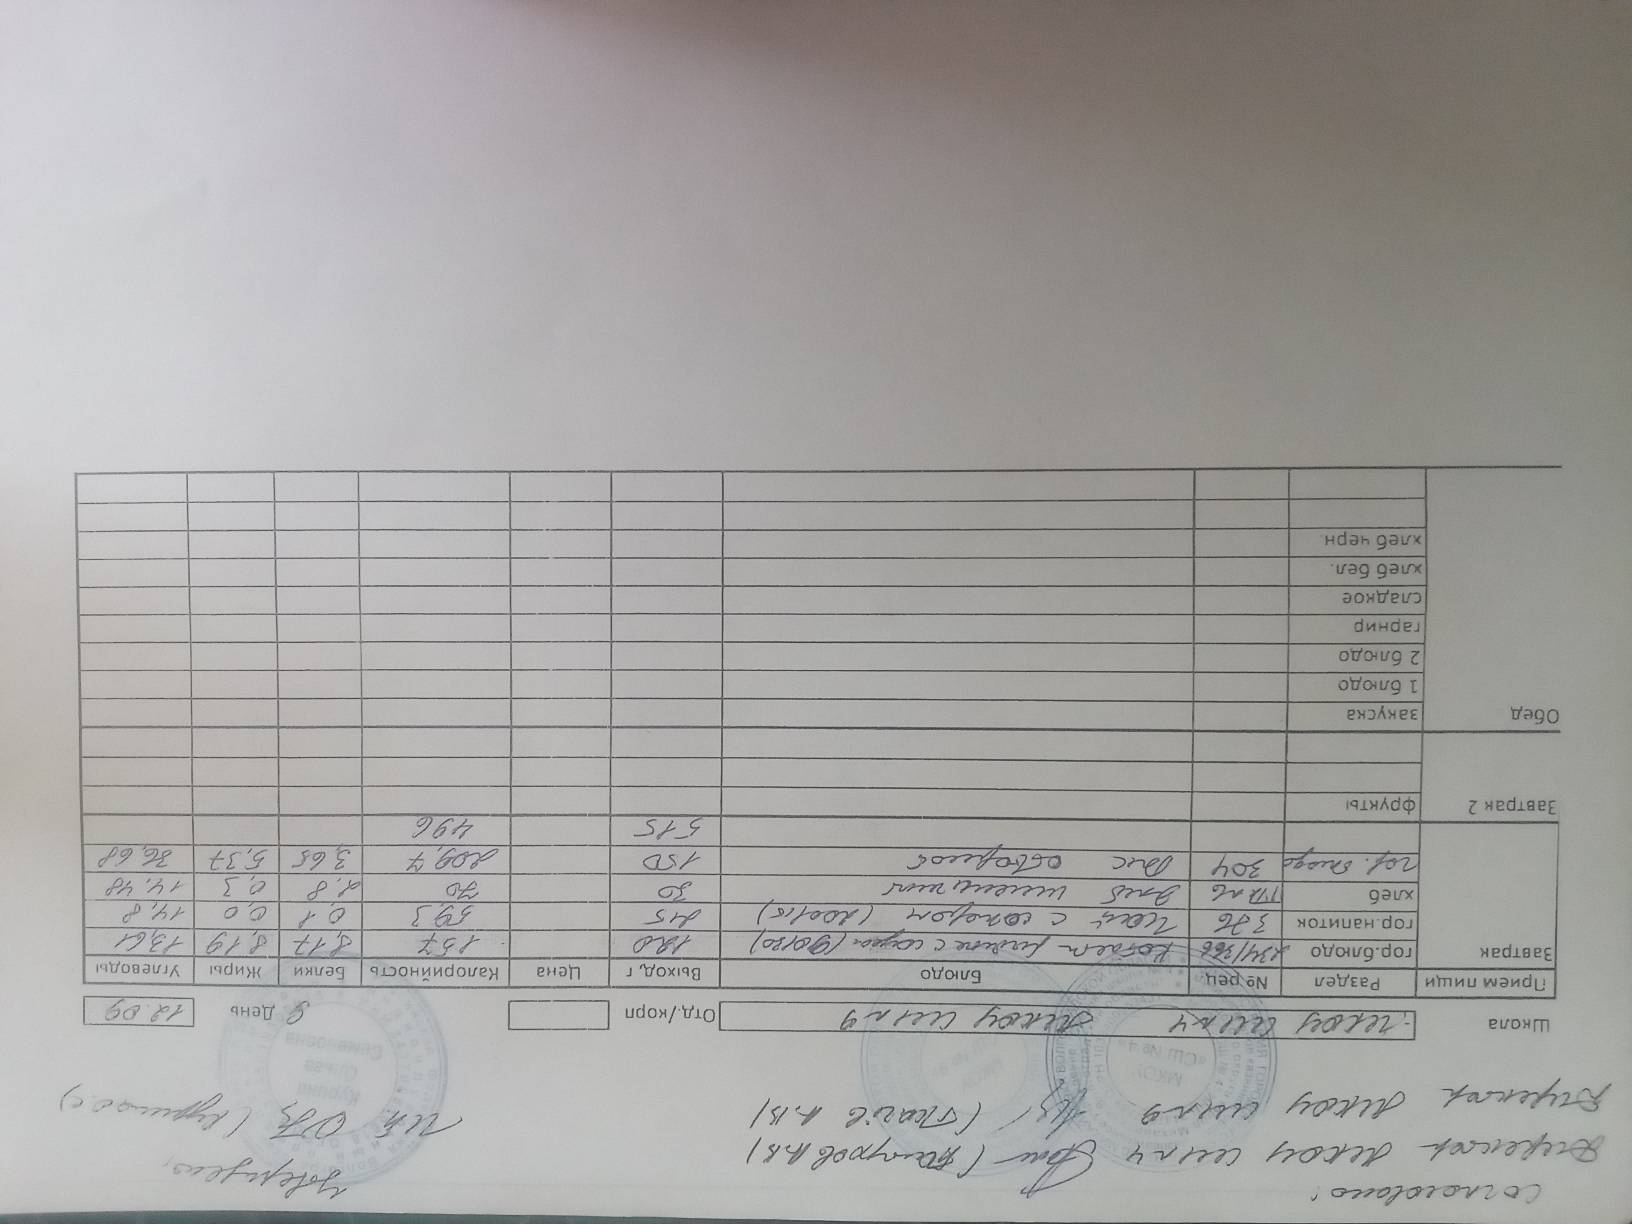 Согласовано: Утверждаю,
Директор МКОУ СШ №4
Директор МКОУ СШ №9 ИП
Школа МКОУ СШ №4 МКОУ СШ №9 Отд./корп 9 День 12.09
Прием пищи Раздел № рец. Блюдо Выход, г Цена Калорийность Белки Жиры Углеводы
Завтрак гор.блюдо 234/366 Котлет рыбные с соусом (90/30) 120 157 8,17 8,19 13,61
гор.напиток 376 Чай с сахаром (200/15) 215 59,3 0,1 0,0 14,8
хлеб пшеничный 30 70 0,3 14,48
гор. блюдо 304 Рис отварной 150 209,7 3,65 5,37 36,68
515 496
Завтрак 2 фрукты
Обед закуска
1 блюдо
2 блюдо
гарнир
сладкое
хлеб бел.
хлеб черн.